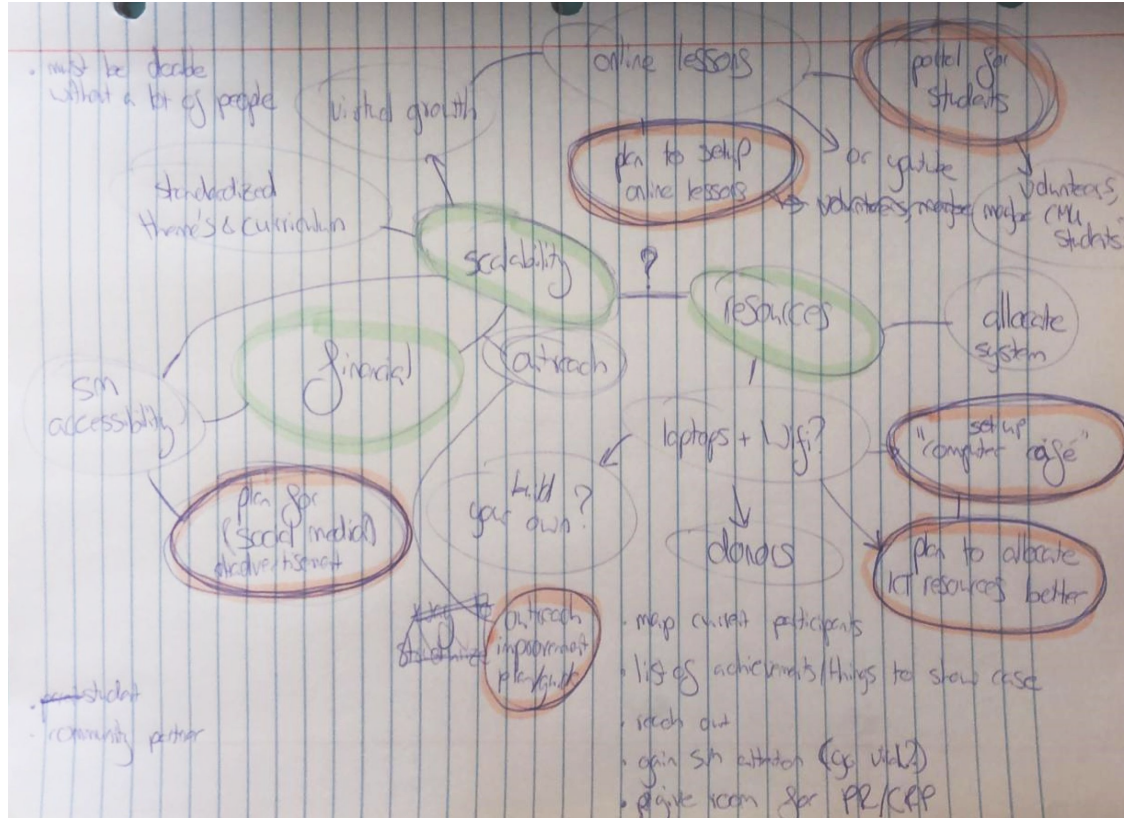 • must be doable
without a lot of people
virtual growth
online lessons
portal for
students
plan to setup
online lessons
or youtube
volunteers, maybe
volunteers,
maybe CMU
students
standardized
theme's & curriculum
scalability
?
resources
allocate
system
financial
outreach
SM
accessibility
laptops + Wifi?
set up
"computer café"
build
your own?
plan for
(social media)
advertisement
donors
plan to allocate
ICT resources better
outreach
improvement
plan/guide
• map current participants
• list of achievements/things to show case
• reach out
• gain SM attention (go viral?)
• give room for
• student
• community partner